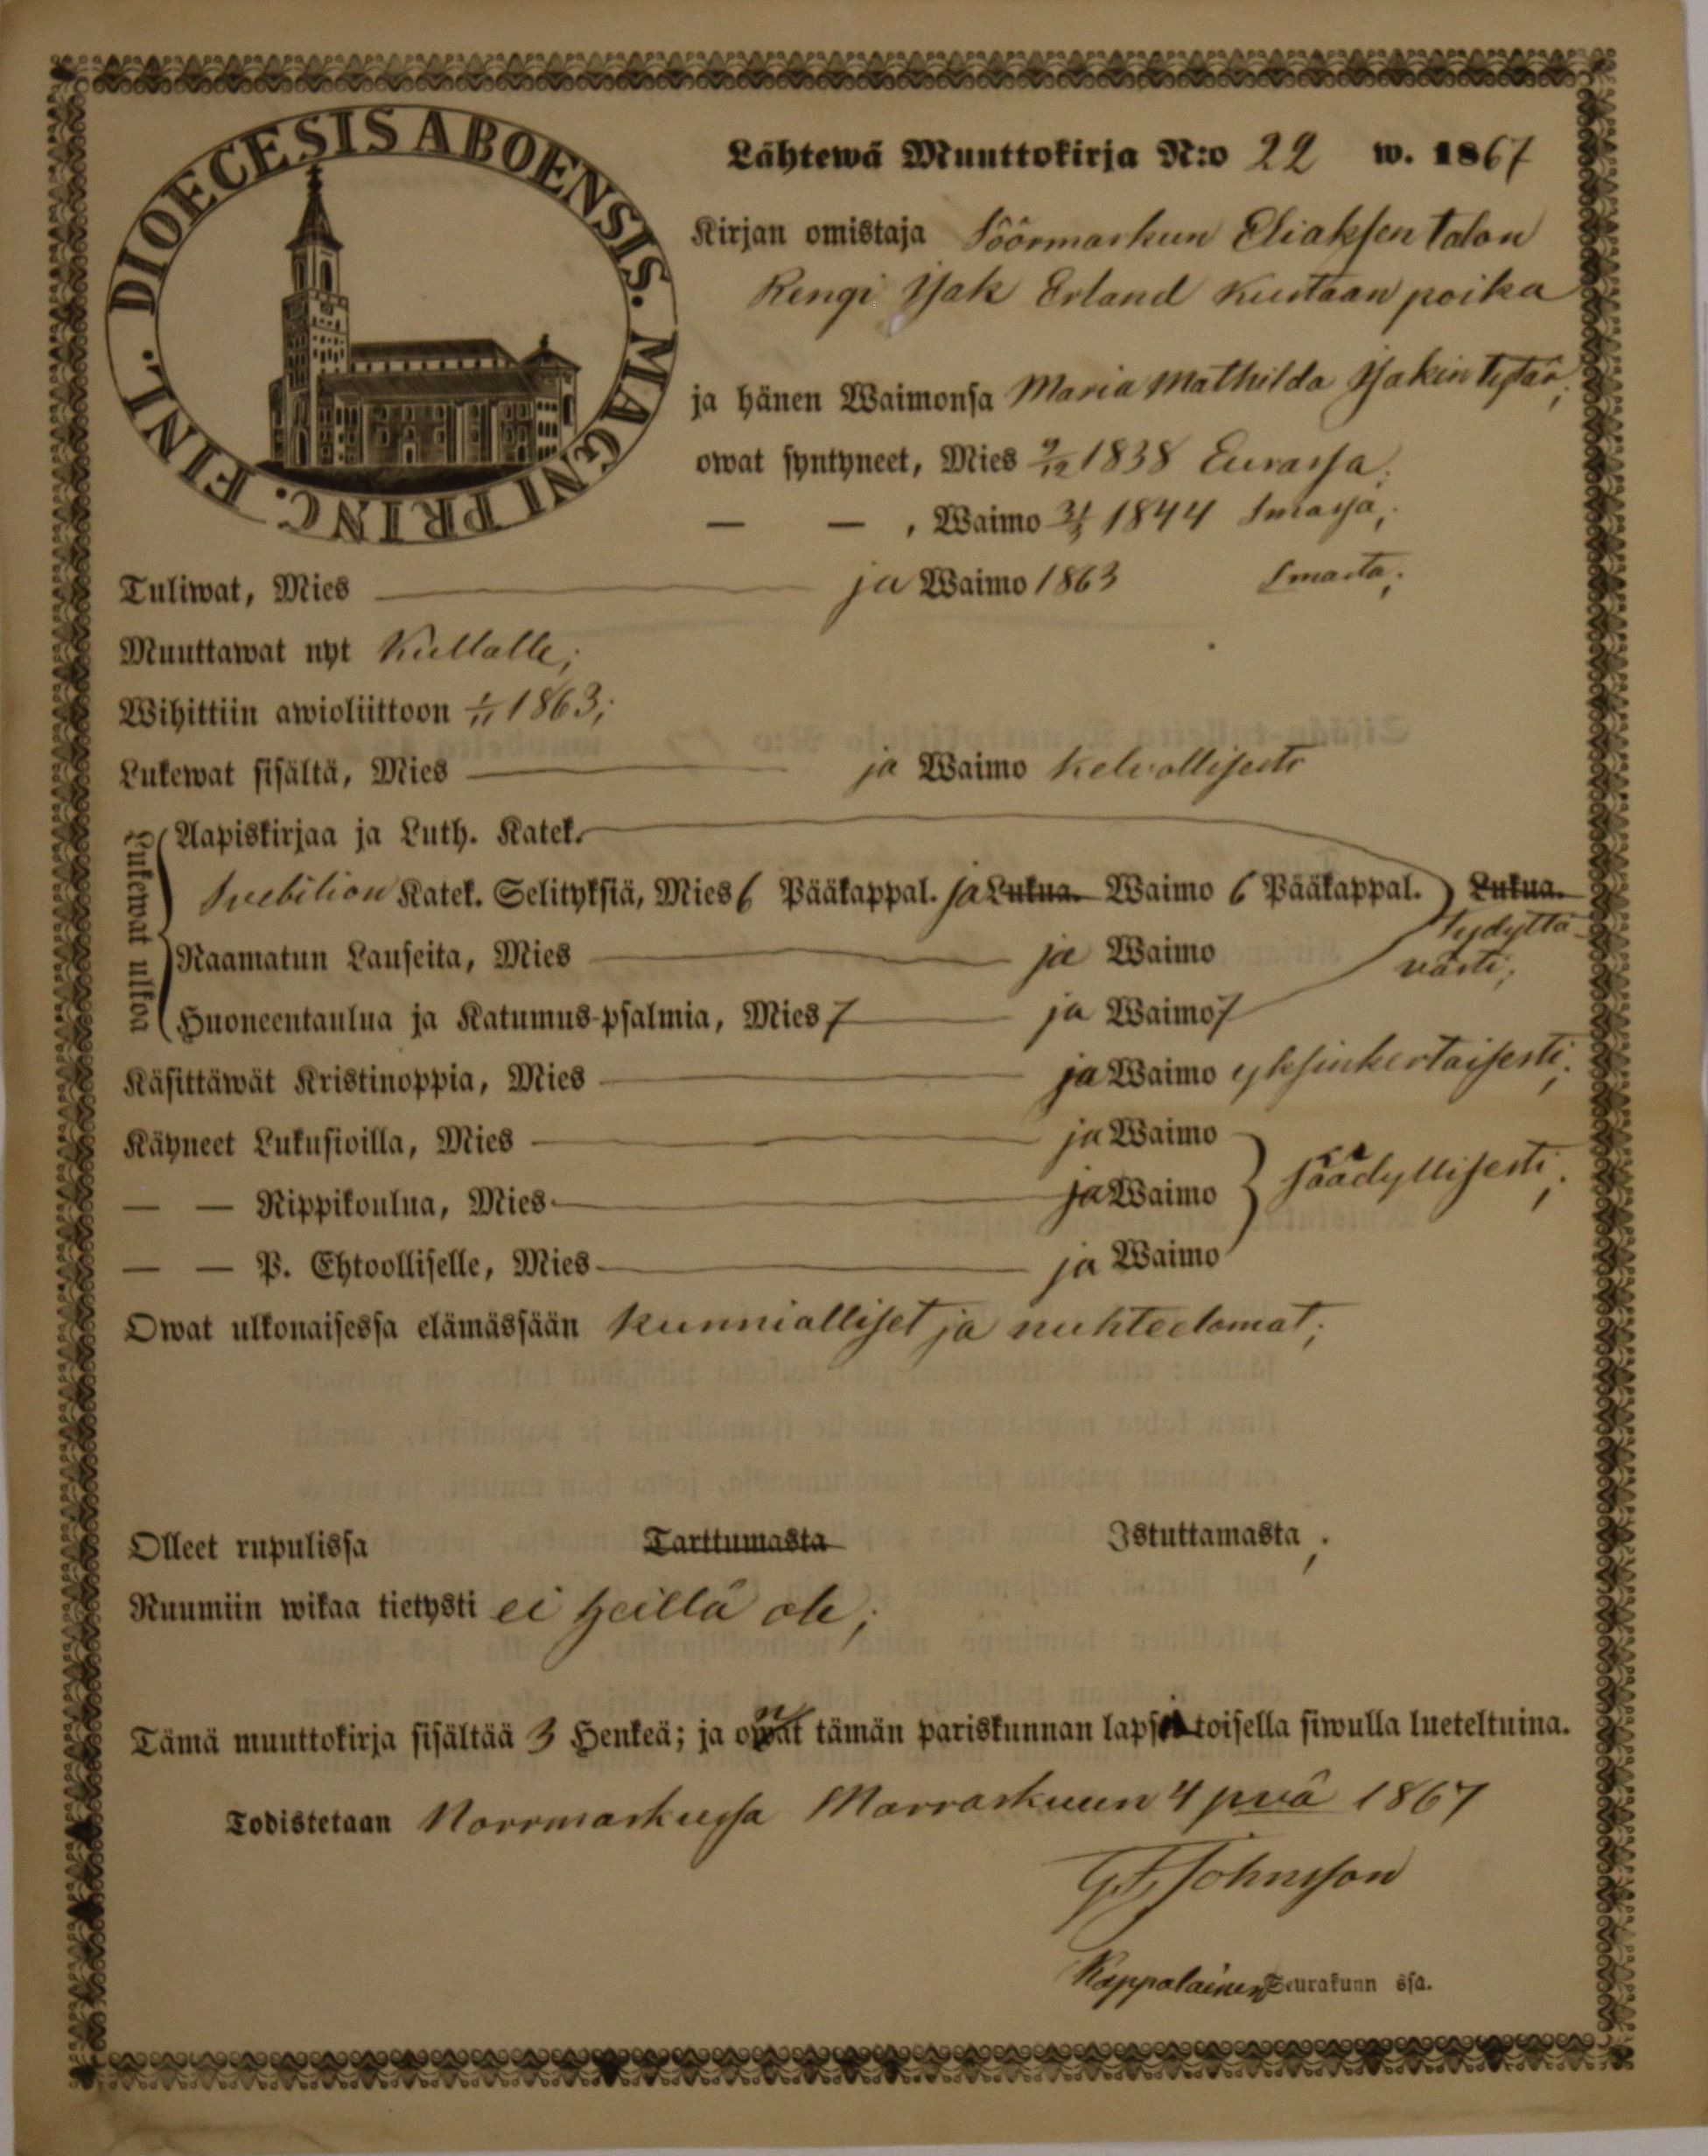 DIOECESIS ABOENSIS. MAGNI PRINC. FINL.
Lähtewä Muuttokirja N:o 22 w. 1867
Kirjan omistaja Söörmarkun Eliaksen talon
Rengi Isak Erland Kustaan poika
ja hänen Waimonsa Maria Mathilda Isakin tytär;
owat syntyneet, Mies 9/12 1838 Eurassa;
— — , Waimo 31/3 1844
Tuliwat, Mies — ja Waimo 1863
Muuttawat nyt Kullalle;
Wihittiin awioliittoon 1/11 1863;
Lukewat sisältä, Mies — ja Waimo kelvollisesti
Lukewat ulkoa
Aapiskirjaa ja Luth. Katek.
Svebilion Katek. Selityksiä, Mies 6 Pääkappal. ja Lukua. Waimo 6 Pääkappal. Lukua.
tydyttä-
västi;
Raamatun Lauseita, Mies — ja Waimo
Huoneentaulua ja Katumus-psalmia, Mies 7 — ja Waimo 7
Käsittäwät Kristinoppia, Mies — ja Waimo yksinkertaisesti;
Käyneet Lukusioilla, Mies — ja Waimo
— — Rippikoulua, Mies — ja Waimo säädyllisesti;
— — P. Ehtoolliselle, Mies — ja Waimo
Owat ulkonaisessa elämässään kunnialliset ja nuhteetomat;
Olleet rupulissa Tarttumasta Istuttamasta;
Ruumiin wikaa tietysti ei heillä ole;
Tämä muuttokirja sisältää 3 Henkeä; ja tämän pariskunnan toisella siwulla lueteltuina.
Todistetaan Norrmarkussa Marraskuun 4 pvä 1867
G. F. Johnsson
Kappalainen Seurakunn ssa.